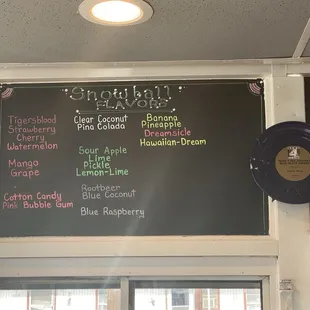 Snowball
FLAVORS
Tigersblood
Strawberry
Cherry
Watermelon
Mango
Grape
Cotton Candy
Pink Bubble Gum
Clear Coconut
Pina Colada
Sour Apple
Lime
Pickle
Lemon-Lime
Rootbeer
Blue Coconut
Blue Raspberry
Banana
Pineapple
Dreamsicle
Hawaiian-Dream